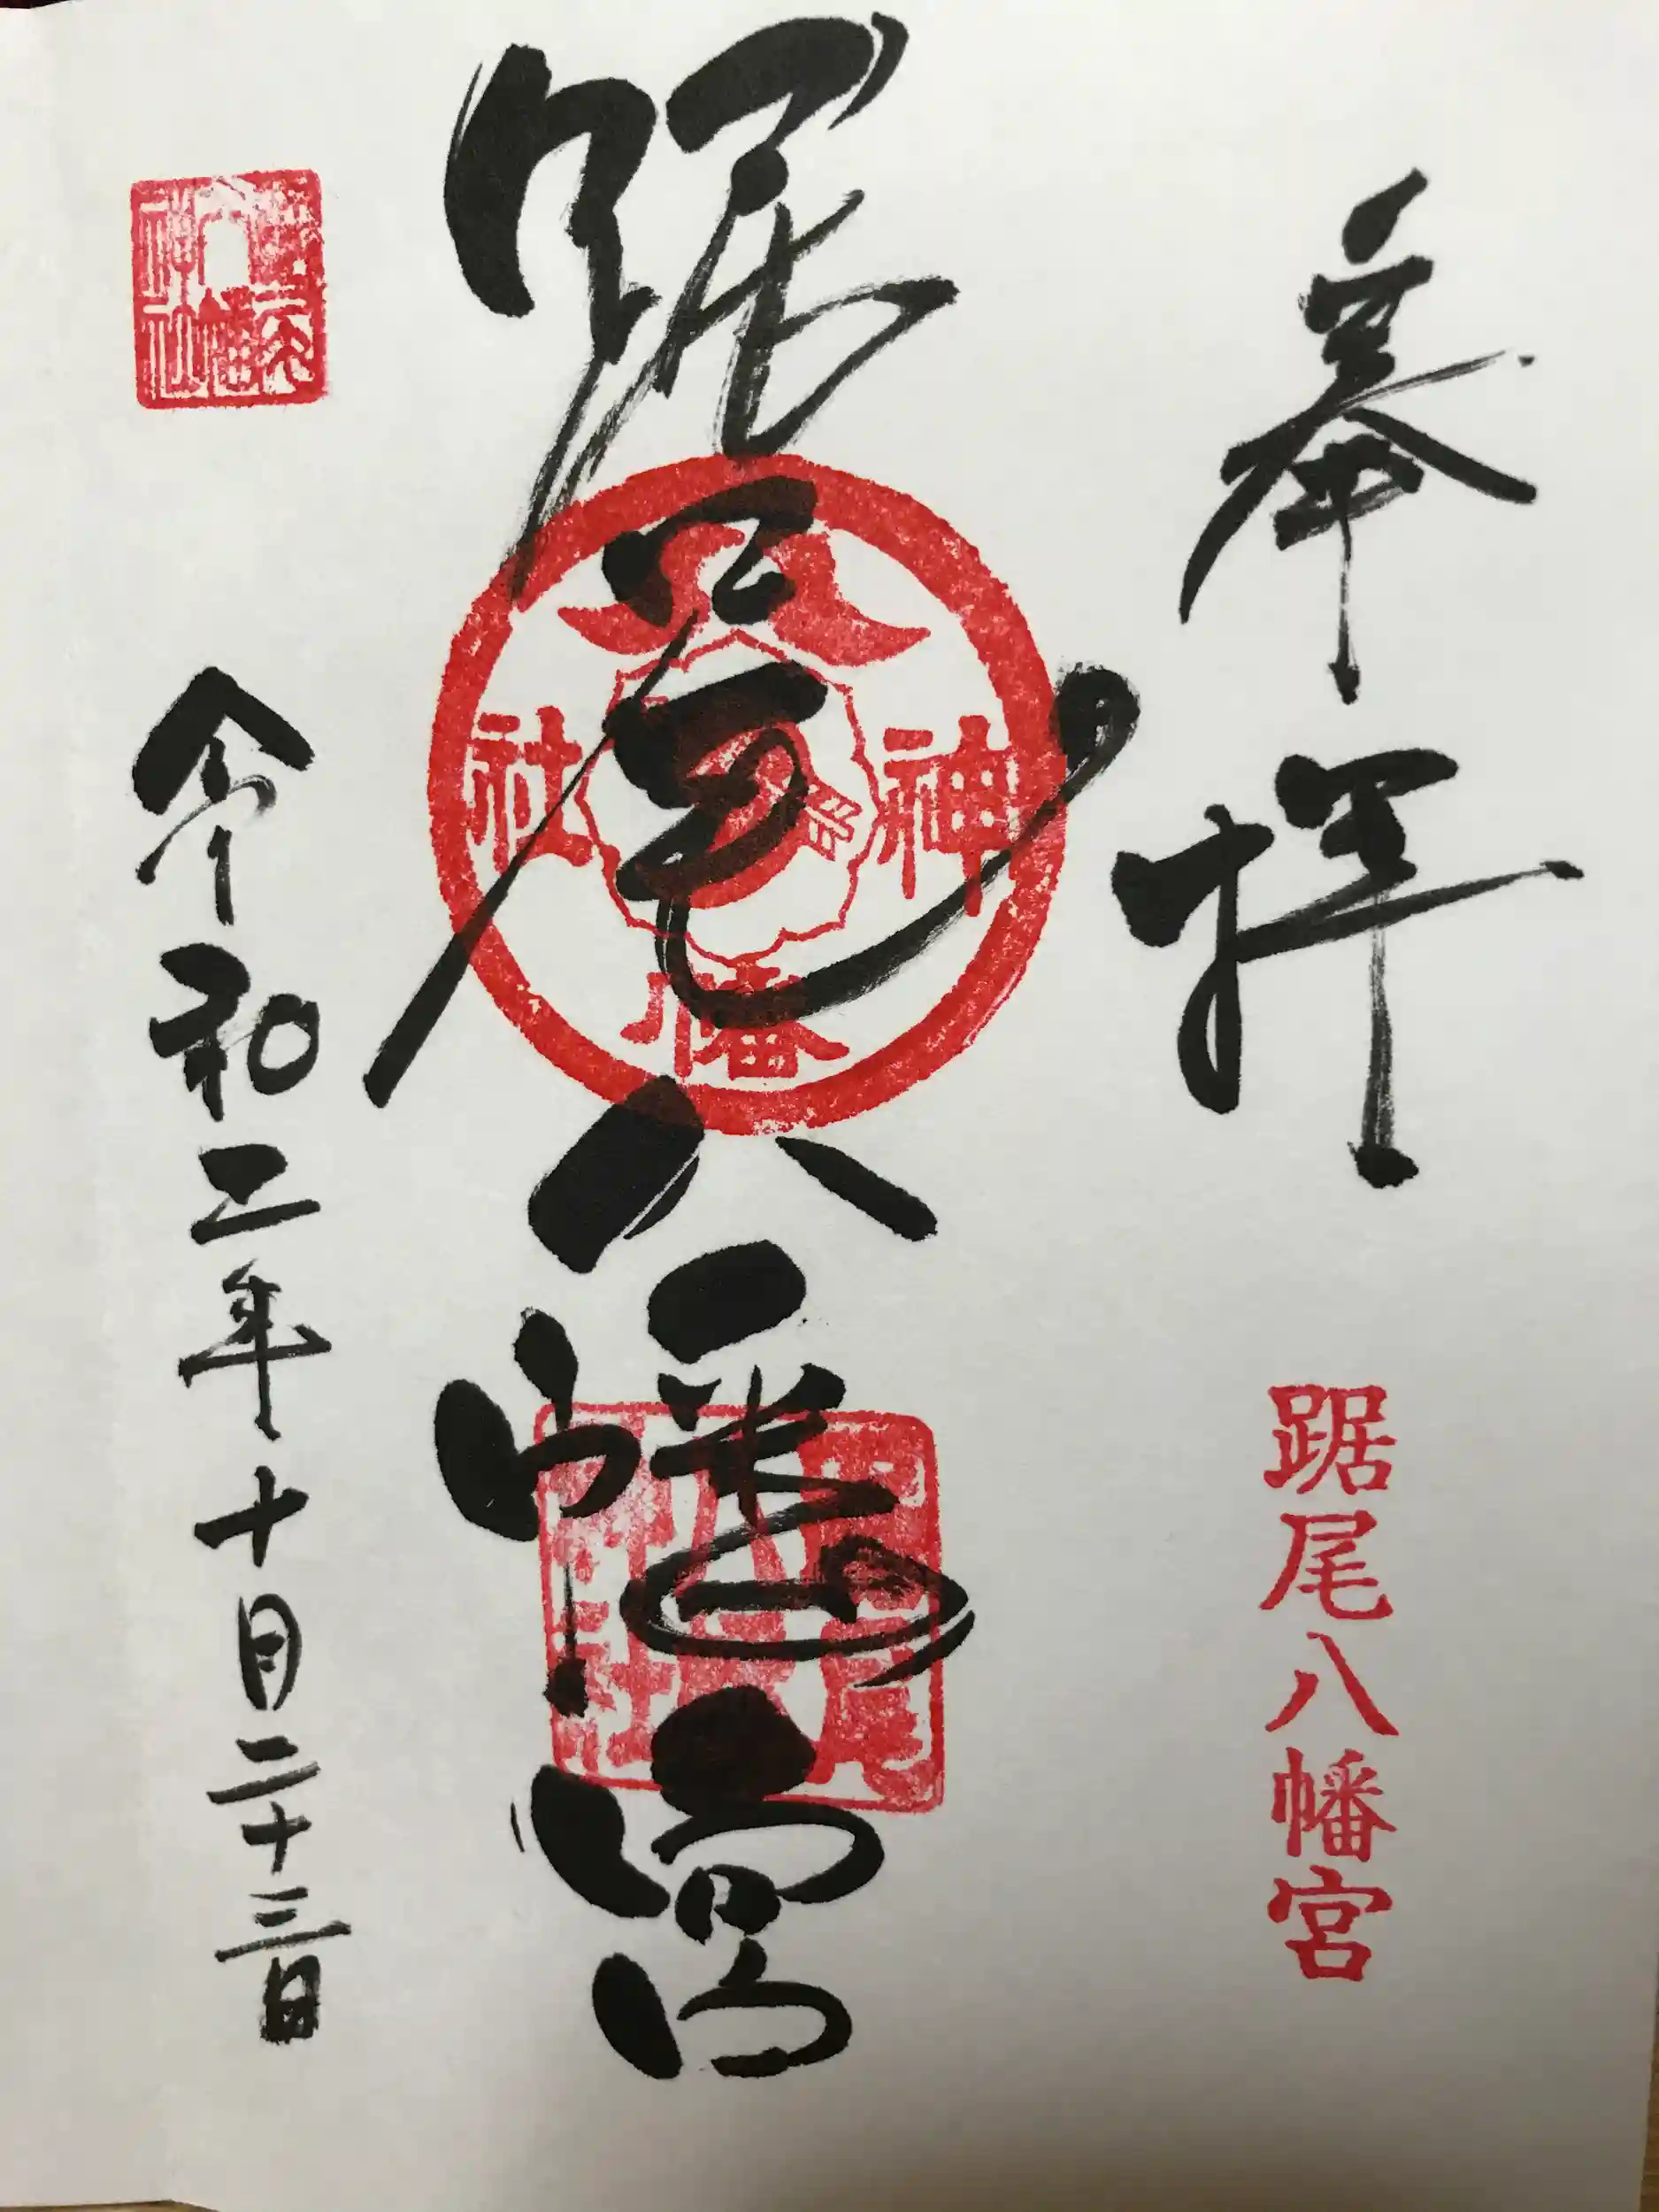 奉拝
踞尾八幡宮
踞尾八幡宮
八幡神社
令和二年十月二十三日